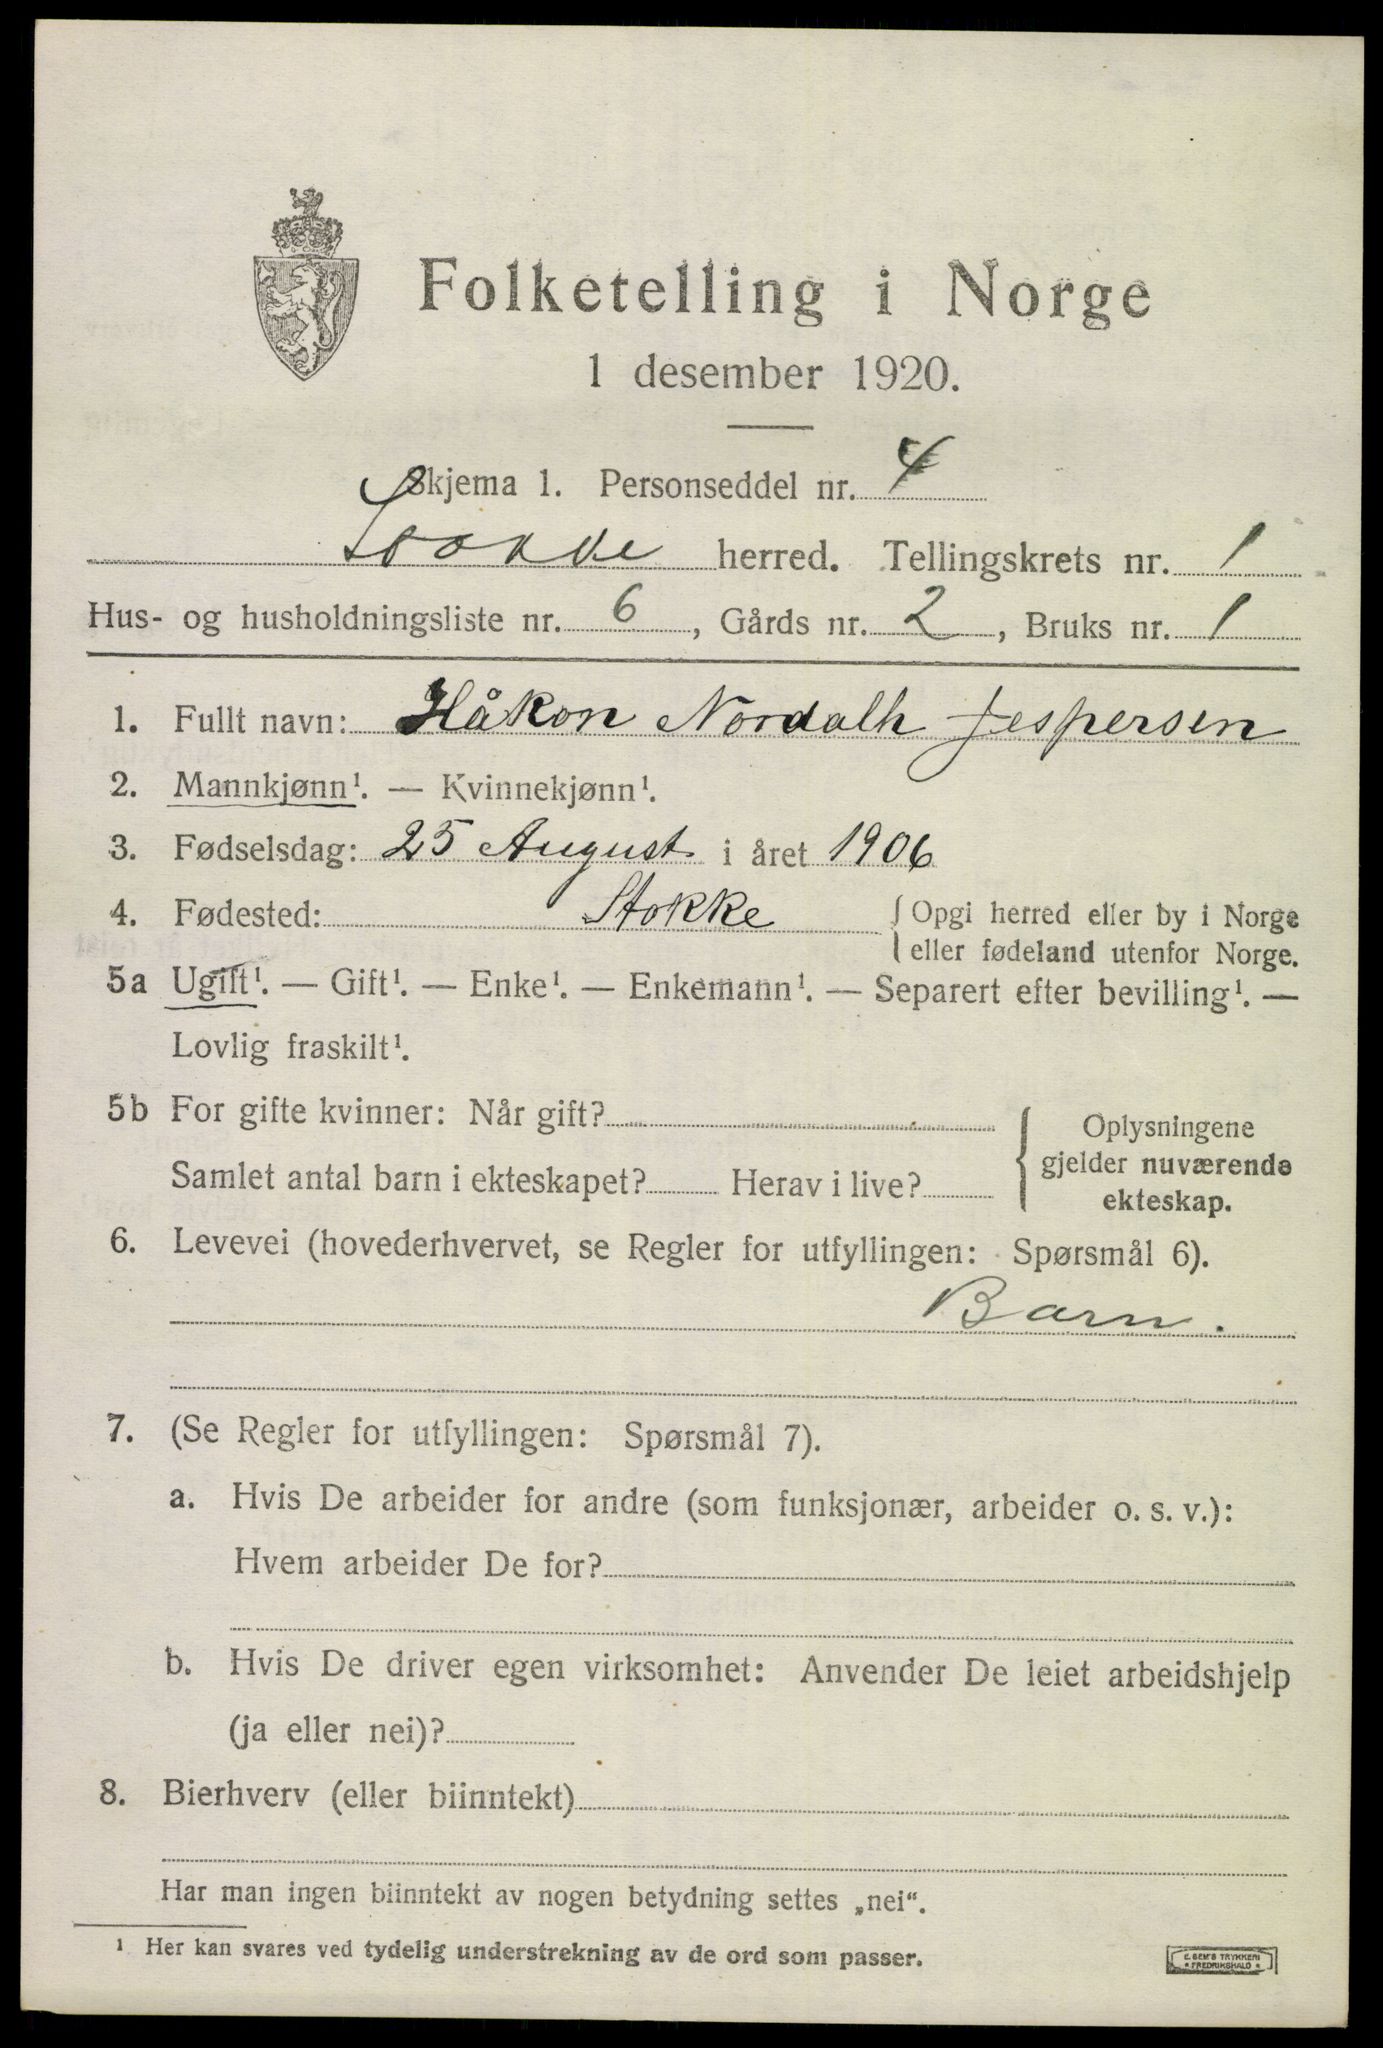 Folketelling i Norge
1 desember 1920.
Skjema 1. Personseddel nr. 4
herred. Tellingskrets nr. 1
Hus- og husholdningsliste nr. 6, Gårds nr. 2, Bruks nr. 1
1. Fullt navn: Håkon Nordalh Jespersen
2. Mannkjønn¹. — Kvinnekjønn¹.
3. Fødselsdag: 25 August i året 1906
4. Fødested: Stokke { Opgi herred eller by i Norge
eller fødeland utenfor Norge.
5a Ugift¹. — Gift¹. — Enke¹. — Enkemann¹. — Separert efter bevilling¹. —
Lovlig fraskilt¹.
5b For gifte kvinner: Når gift?
Samlet antal barn i ekteskapet? Herav i live?
{ Oplysningene
gjelder nuværende
ekteskap.
6. Levevei (hovederhvervet, se Regler for utfyllingen: Spørsmål 6).
Barn.
7. (Se Regler for utfyllingen: Spørsmål 7).
a. Hvis De arbeider for andre (som funksjonær, arbeider o. s. v.):
Hvem arbeider De for?
b. Hvis De driver egen virksomhet: Anvender De leiet arbeidshjelp
(ja eller nei)?
8. Bierhverv (eller biinntekt)
Har man ingen biinntekt av nogen betydning settes „nei“.
¹ Her kan svares ved tydelig understrekning av de ord som passer.
E. SEM'S TRYKKERI
* FREDRIKSHALD *